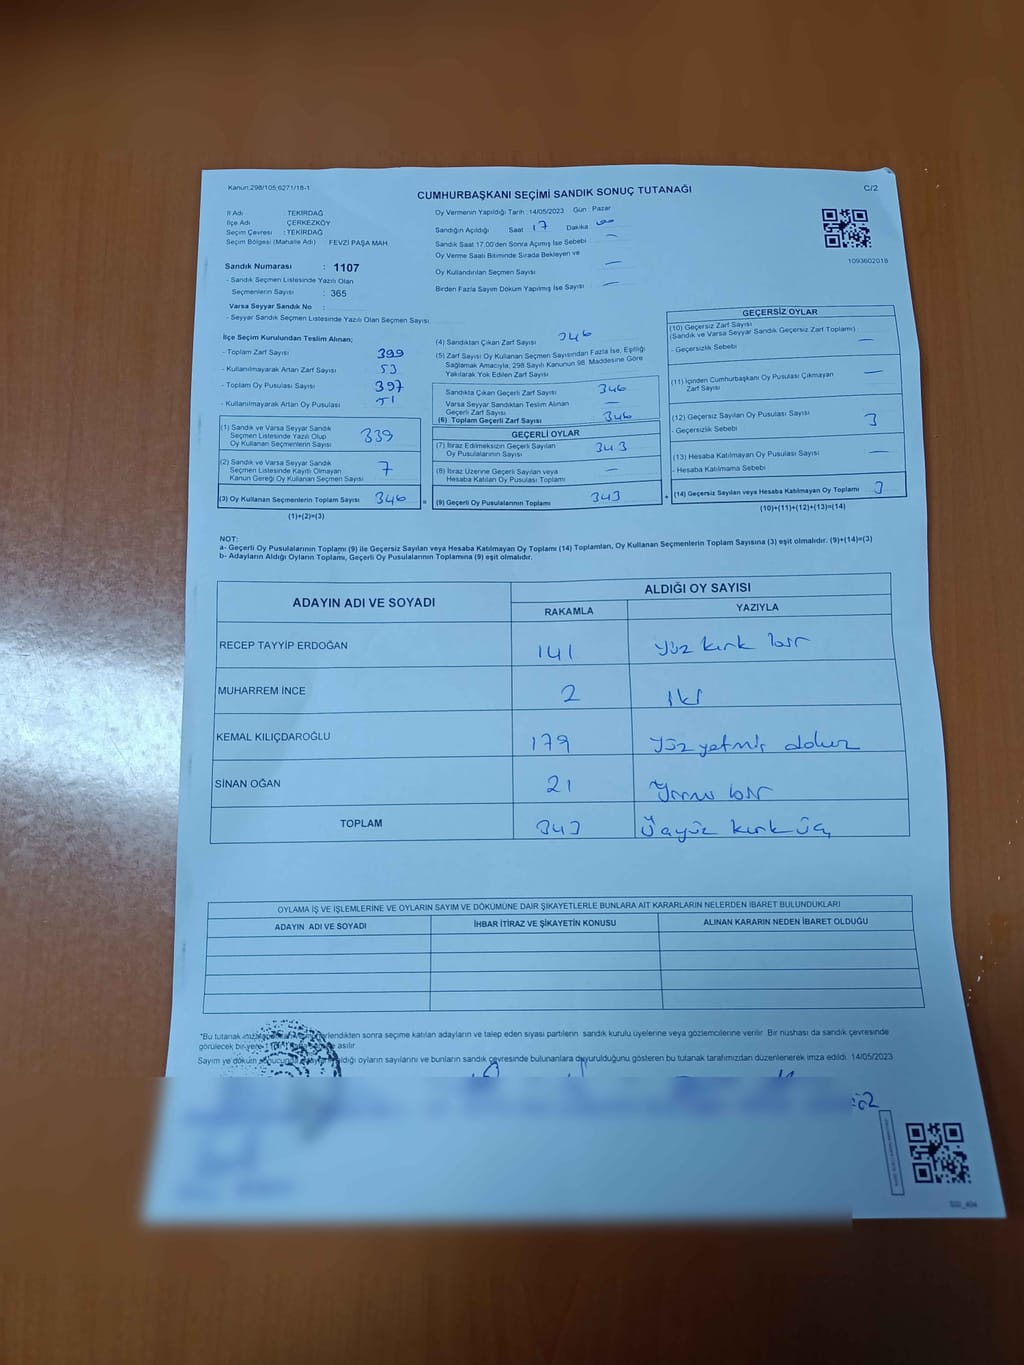 Kanun:298/105;6271/18-1
CUMHURBAŞKANI SEÇİMİ SANDIK SONUÇ TUTANAĞI
C/2
İl Adı : TEKİRDAĞ
İlçe Adı : ÇERKEZKÖY
Seçim Çevresi : TEKİRDAĞ
Seçim Bölgesi (Mahalle Adı) FEVZİ PAŞA MAH.
Sandık Numarası : 1107
- Sandık Seçmen Listesinde Yazılı Olan
Seçmenlerin Sayısı : 365
Varsa Seyyar Sandık No :
- Seyyar Sandık Seçmen Listesinde Yazılı Olan Seçmen Sayısı
Oy Vermenin Yapıldığı Tarih : 14/05/2023 Gün : Pazar
Sandığın Açıldığı Saat 17 Dakika
Sandık Saat 17:00'den Sonra Açımış İse Sebebi —
Oy Verme Saati Bitiminde Sırada Bekleyen ve
Oy Kullandırılan Seçmen Sayısı —
Birden Fazla Sayım Döküm Yapılmış İse Sayısı —
1093602018
İlçe Seçim Kurulundan Teslim Alınan;
- Toplam Zarf Sayısı 399
- Kullanılmayarak Artan Zarf Sayısı 53
- Toplam Oy Pusulası Sayısı 397
- Kullanılmayarak Artan Oy Pusulası 51
(1) Sandık ve Varsa Seyyar Sandık
Seçmen Listesinde Yazılı Olup
Oy Kullanan Seçmenlerin Sayısı 339
(2) Sandık ve Varsa Seyyar Sandık
Seçmen Listesinde Kayıtlı Olmayan
Kanun Gereği Oy Kullanan Seçmen Sayısı 7
(3) Oy Kullanan Seçmenlerin Toplam Sayısı 346 =
(1)+(2)=(3)
(4) Sandıktan Çıkan Zarf Sayısı 346
(5) Zarf Sayısı Oy Kullanan Seçmen Sayısından Fazla İse, Eşitliği
Sağlamak Amacıyla; 298 Sayılı Kanunun 98. Maddesine Göre
Yakılarak Yok Edilen Zarf Sayısı
Sandıkta Çıkan Geçerli Zarf Sayısı 346
Varsa Seyyar Sandıktan Teslim Alınan
Geçerli Zarf Sayısı —
(6) Toplam Geçerli Zarf Sayısı 346
GEÇERLİ OYLAR
(7) İtiraz Edilmeksizin Geçerli Sayılan
Oy Pusulalarının Sayısı 343
(8) İtiraz Üzerine Geçerli Sayılan veya
Hesaba Katılan Oy Pusulası Toplamı —
(9) Geçerli Oy Pusulalarının Toplamı 343 +
GEÇERSİZ OYLAR
(10) Geçersiz Zarf Sayısı
(Sandık ve Varsa Seyyar Sandık Geçersiz Zarf Toplamı)
- Geçersizlik Sebebi —
(11) İçinden Cumhurbaşkanı Oy Pusulası Çıkmayan
Zarf Sayısı —
(12) Geçersiz Sayılan Oy Pusulası Sayısı 3
- Geçersizlik Sebebi
(13) Hesaba Katılmayan Oy Pusulası Sayısı —
- Hesaba Katılmama Sebebi
(14) Geçersiz Sayılan veya Hesaba Katılmayan Oy Toplamı 3
(10)+(11)+(12)+(13)=(14)
NOT:
a- Geçerli Oy Pusulalarının Toplamı (9) ile Geçersiz Sayılan veya Hesaba Katılmayan Oy Toplamı (14) Toplamları, Oy Kullanan Seçmenlerin Toplam Sayısına (3) eşit olmalıdır. (9)+(14)=(3)
b- Adayların Aldığı Oyların Toplamı, Geçerli Oy Pusulalarının Toplamına (9) eşit olmalıdır.
ADAYIN ADI VE SOYADI
ALDIĞI OY SAYISI
RAKAMLA YAZIYLA
RECEP TAYYİP ERDOĞAN 141 yüz kırk bir
MUHARREM İNCE 2 iki
KEMAL KILIÇDAROĞLU 179 yüz yetmiş dokuz
SİNAN OĞAN 21 Yirmi bir
TOPLAM 343 Üçyüz kırk üç
OYLAMA İŞ VE İŞLEMLERİNE VE OYLARIN SAYIM VE DÖKÜMÜNE DAİR ŞİKAYETLERLE BUNLARA AİT KARARLARIN NELERDEN İBARET BULUNDUKLARI
ADAYIN ADI VE SOYADI İHBAR İTİRAZ VE ŞİKAYETİN KONUSU ALINAN KARARIN NEDEN İBARET OLDUĞU
*Bu tutanak sonra seçime katılan adayların ve talep eden siyasi partilerin sandık kurulu üyelerine veya gözlemcilerine verilir. Bir nüshası da sandık çevresinde
görülecek bir yere asılır.
Sayım ve döküm sonucunda oyların sayılarını ve bunların sandık çevresinde bulunanlara duyurulduğunu gösteren bu tutanak tarafımızdan düzenlenerek imza edildi. 14/05/2023